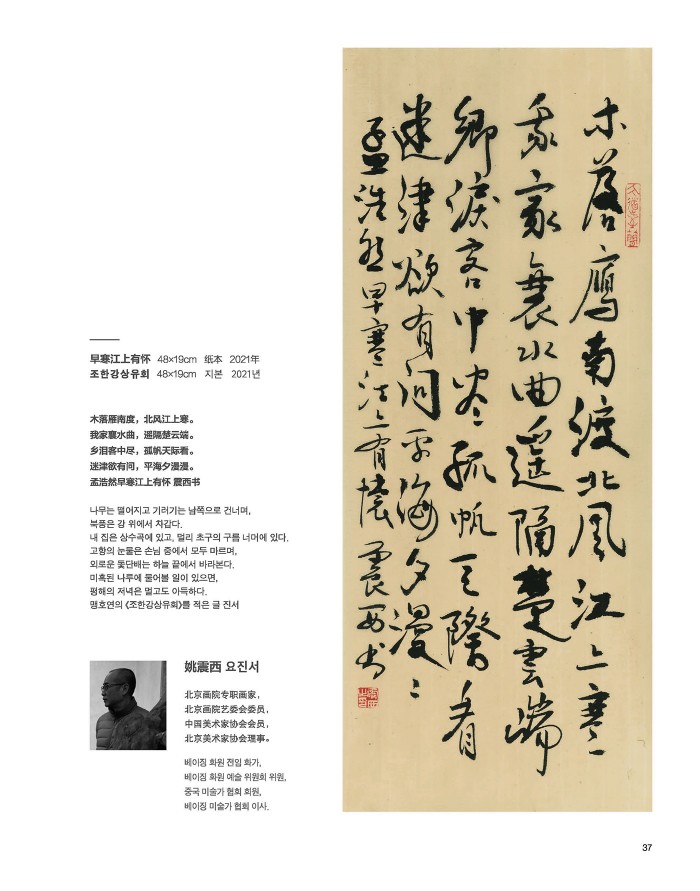 早寒江上有怀 48×19cm 纸本 2021年
조한강상유회 48×19cm 지본 2021년
木落雁南度，北风江上寒。
我家襄水曲，遥隔楚云端。
乡泪客中尽，孤帆天际看。
迷津欲有问，平海夕漫漫。
孟浩然早寒江上有怀 震西书
나무는 떨어지고 기러기는 남쪽으로 건너며,
북풍은 강 위에서 차갑다.
내 집은 상수곡에 있고, 멀리 초구의 구름 너머에 있다.
고향의 눈물은 손님 중에서 모두 마르며,
외로운 돛단배는 하늘 끝에서 바라본다.
미혹된 나루에 물어볼 일이 있으면,
평해의 저녁은 멀고도 아득하다.
맹호연의 《조한강상유회》를 적은 글 진서
姚震西 요진서
北京画院专职画家，
北京画院艺委会委员，
中国美术家协会会员，
北京美术家协会理事。
베이징 화원 전임 화가,
베이징 화원 예술 위원회 위원,
중국 미술가 협회 회원,
베이징 미술가 협회 이사.
木落鴈南渡北風江上寒
我家襄水曲遥隔楚雲端
鄉淚客中尽孤帆天際看
迷津欲有问平海夕漫〻
孟浩然早寒江上有懷 震西书
37